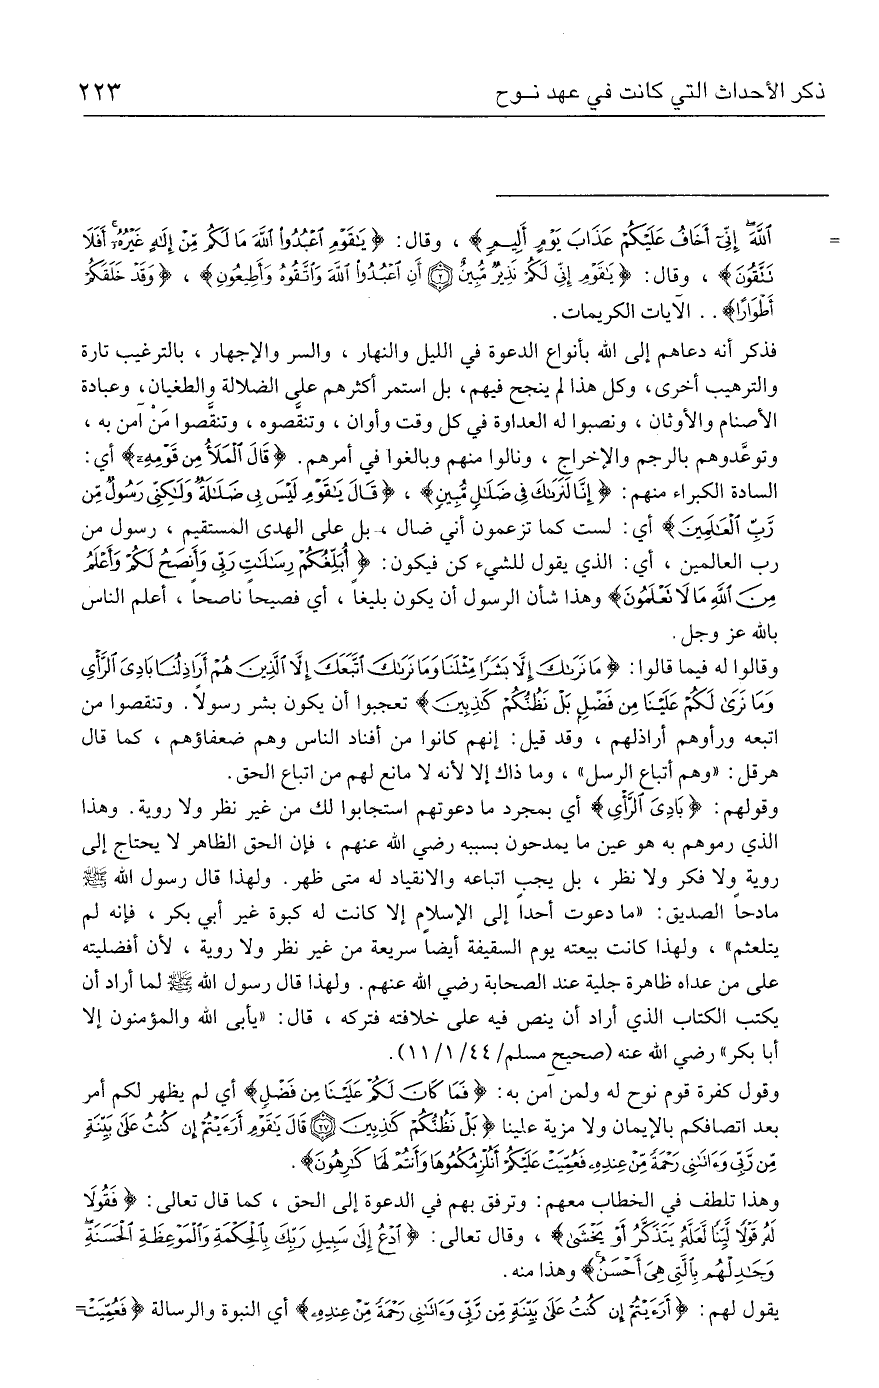 ذكر الأحداث التي كانت في عهد نــوح ٢٢٣
= ٱللَّهَۖ إِنِّيٓ أَخَافُ عَلَيۡكُمۡ عَذَابَ يَوۡمٍ أَلِيمٖ﴾ ، وقال: ﴿يَٰقَوۡمِ ٱعۡبُدُواْ ٱللَّهَ مَا لَكُم مِّنۡ إِلَٰهٍ غَيۡرُهُۥٓۚ أَفَلَا
تَتَّقُونَ﴾ ، وقال: ﴿يَٰقَوۡمِ إِنِّي لَكُمۡ نَذِيرٞ مُّبِينٌ ٢ أَنِ ٱعۡبُدُواْ ٱللَّهَ وَٱتَّقُوهُ وَأَطِيعُونِ﴾ ، ﴿وَقَدۡ خَلَقَكُمۡ
أَطۡوَارًا﴾ . . الآيات الكريمات .
فذكر أنه دعاهم إلى الله بأنواع الدعوة في الليل والنهار ، والسر والإجهار ، بالترغيب تارة
والترهيب أخرى، وكل هذا لم ينجح فيهم، بل استمر أكثرهم على الضلالة والطغيان، وعبادة
الأصنام والأوثان ، ونصبوا له العداوة في كل وقت وأوان ، وتنقَّصوه ، وتنقَّصوا مَنْ آمن به ،
وتوعَّدوهم بالرجم والإخراج ، ونالوا منهم وبالغوا في أمرهم. ﴿قَالَ ٱلۡمَلَأُ مِن قَوۡمِهِۦ﴾ أي:
السادة الكبراء منهم: ﴿إِنَّا لَنَرَىٰكَ فِي ضَلَٰلٖ مُّبِينٖ﴾ ، ﴿قَالَ يَٰقَوۡمِ لَيۡسَ بِي ضَلَٰلَةٞ وَلَٰكِنِّي رَسُولٞ مِّن
رَّبِّ ٱلۡعَٰلَمِينَ﴾ أي: لست كما تزعمون أني ضال ، بل على الهدى المستقيم ، رسول من
رب العالمين ، أي: الذي يقول للشيء كن فيكون: ﴿أُبَلِّغُكُمۡ رِسَٰلَٰتِ رَبِّي وَأَنصَحُ لَكُمۡ وَأَعۡلَمُ
مِنَ ٱللَّهِ مَا لَا تَعۡلَمُونَ﴾ وهذا شأن الرسول أن يكون بليغاً ، أي فصيحاً ناصحاً ، أعلم الناس
بالله عز وجل.
وقالوا له فيما قالوا: ﴿مَا نَرَىٰكَ إِلَّا بَشَرٗا مِّثۡلَنَا وَمَا نَرَىٰكَ ٱتَّبَعَكَ إِلَّا ٱلَّذِينَ هُمۡ أَرَاذِلُنَا بَادِيَ ٱلرَّأۡيِ
وَمَا نَرَىٰ لَكُمۡ عَلَيۡنَا مِن فَضۡلِۭ بَلۡ نَظُنُّكُمۡ كَٰذِبِينَ﴾ تعجبوا أن يكون بشر رسولاً. وتنقصوا من
اتبعه ورأوهم أراذلهم ، وقد قيل: إنهم كانوا من أفناد الناس وهم ضعفاؤهم ، كما قال
هرقل: «وهم أتباع الرسل» ، وما ذاك إلا لأنه لا مانع لهم من اتباع الحق.
وقولهم: ﴿بَادِيَ ٱلرَّأۡيِ﴾ أي بمجرد ما دعوتهم استجابوا لك من غير نظر ولا روية. وهذا
الذي رموهم به هو عين ما يمدحون بسببه رضي الله عنهم ، فإن الحق الظاهر لا يحتاج إلى
روية ولا فكر ولا نظر ، بل يجب اتباعه والانقياد له متى ظهر. ولهذا قال رسول الله ﷺ
مادحاً الصديق: «ما دعوت أحداً إلى الإسلام إلا كانت له كبوة غير أبي بكر ، فإنه لم
يتلعثم» ، ولهذا كانت بيعته يوم السقيفة أيضاً سريعة من غير نظر ولا روية ، لأن أفضليته
على من عداه ظاهرة جلية عند الصحابة رضي الله عنهم. ولهذا قال رسول الله ﷺ لما أراد أن
يكتب الكتاب الذي أراد أن ينص فيه على خلافته فتركه ، قال: «يأبى الله والمؤمنون إلا
أبا بكر» رضي الله عنه (صحيح مسلم/ ٤٤/ ١/ ١١).
وقول كفرة قوم نوح له ولمن آمن به: ﴿فَمَا كَانَ لَكُمۡ عَلَيۡنَا مِن فَضۡلٖ﴾ أي لم يظهر لكم أمر
بعد اتصافكم بالإيمان ولا مزية علينا ﴿بَلۡ نَظُنُّكُمۡ كَٰذِبِينَ ٢٧ قَالَ يَٰقَوۡمِ أَرَءَيۡتُمۡ إِن كُنتُ عَلَىٰ بَيِّنَةٖ
مِّن رَّبِّي وَءَاتَىٰنِي رَحۡمَةٗ مِّنۡ عِندِهِۦ فَعُمِّيَتۡ عَلَيۡكُمۡ أَنُلۡزِمُكُمُوهَا وَأَنتُمۡ لَهَا كَٰرِهُونَ﴾ .
وهذا تلطف في الخطاب معهم: وترفق بهم في الدعوة إلى الحق ، كما قال تعالى: ﴿فَقُولَا
لَهُۥ قَوۡلٗا لَّيِّنٗا لَّعَلَّهُۥ يَتَذَكَّرُ أَوۡ يَخۡشَىٰ﴾ ، وقال تعالى: ﴿ٱدۡعُ إِلَىٰ سَبِيلِ رَبِّكَ بِٱلۡحِكۡمَةِ وَٱلۡمَوۡعِظَةِ ٱلۡحَسَنَةِۖ
وَجَٰدِلۡهُم بِٱلَّتِي هِيَ أَحۡسَنُۚ﴾ وهذا منه.
يقول لهم: ﴿أَرَءَيۡتُمۡ إِن كُنتُ عَلَىٰ بَيِّنَةٖ مِّن رَّبِّي وَءَاتَىٰنِي رَحۡمَةٗ مِّنۡ عِندِهِۦ﴾ أي النبوة والرسالة ﴿فَعُمِّيَتۡ=